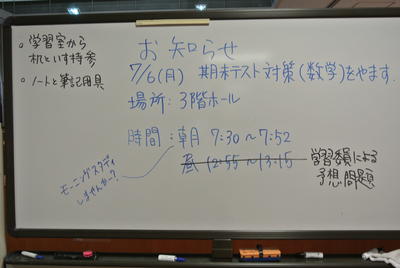 お知らせ
7/6(月) 期末テスト対策(数学)をやます.
場所: 3階ホール
時間:朝 7:30～7:52
昼 12:55～13:15
学習委員による
予想問題
モーニングスタディ
しませんか～?
・学習室から
机といす持参
・ノートと筆記用具